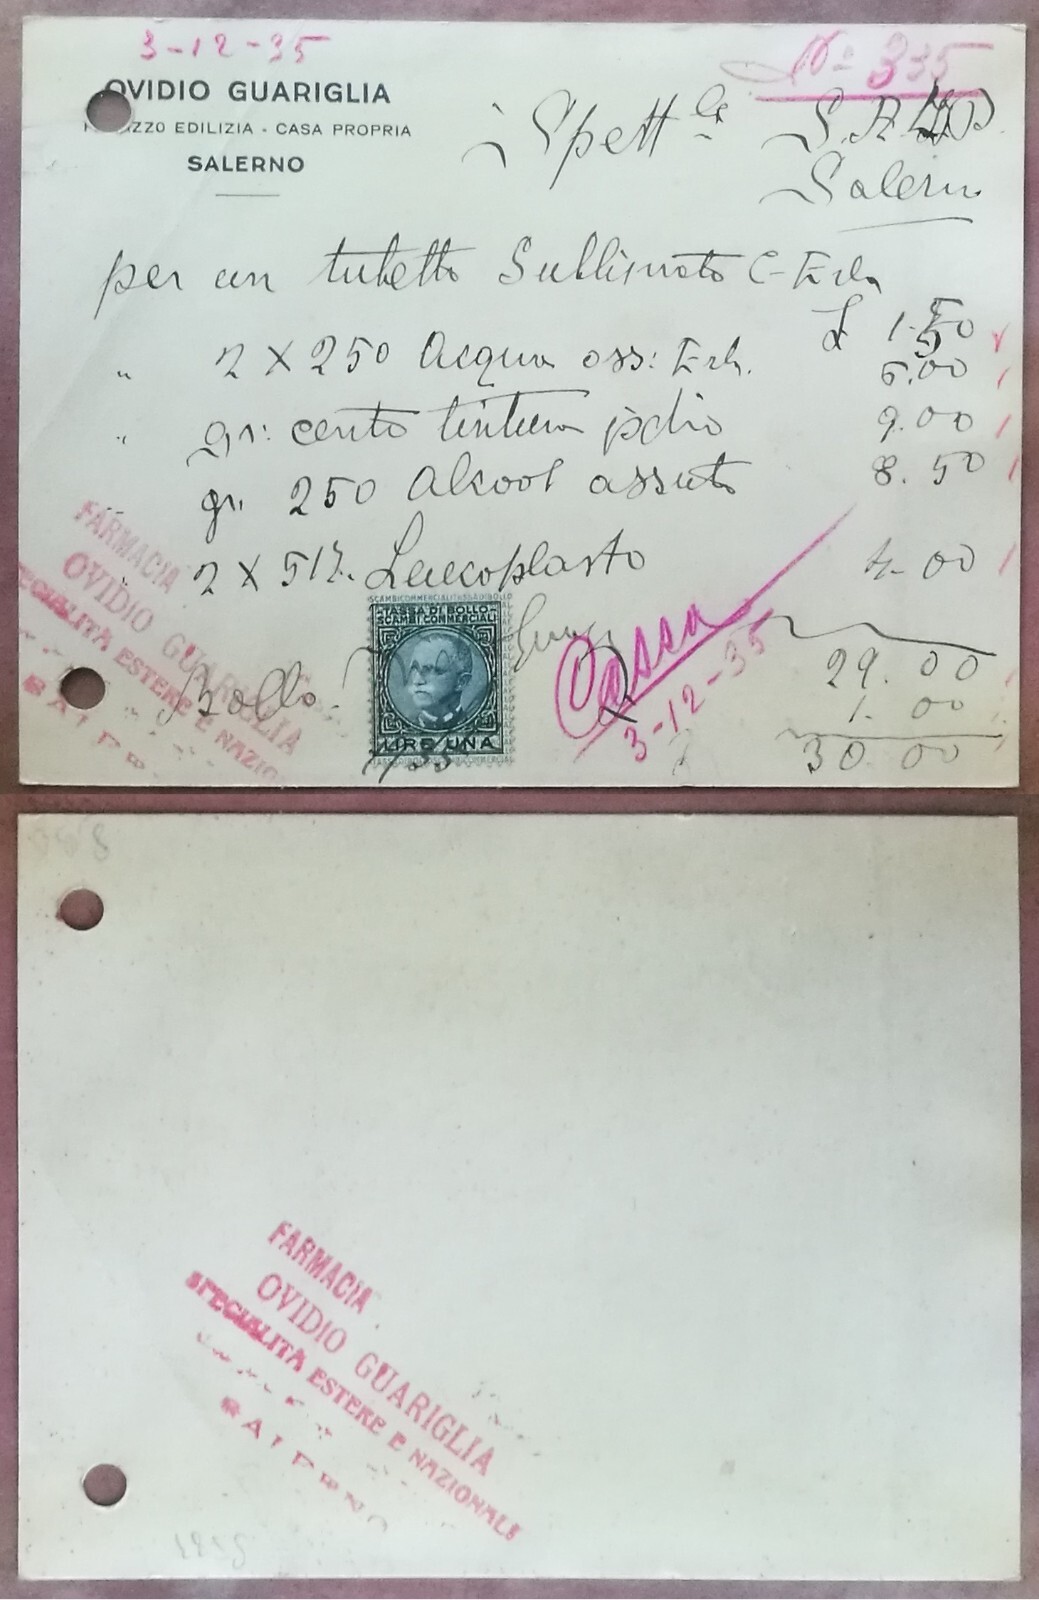 3-12-35
Nº 335
OVIDIO GUARIGLIA
PALAZZO EDILIZIA - CASA PROPRIA
SALERNO
Spett.le
Salerno
per un tubetto Sublimato C- Erba
£ 1.50
" 2 X 250 Acqua oss: Erb. 6.00
" gr: cento tintura jodio 9.00
gr. 250 Alcool assuto 8.50
2 X 512. Leucoplasto 4.00
FARMACIA
OVIDIO GUARIGLIA
SPECIALITÀ ESTERE E NAZIONALI
SALERNO
SCAMBI COMMERCIALI TASSA DI BOLLO
TASSA DI BOLLO
SCAMBI COMMERCIALI
LIRE UNA
29.00
Bollo 1.00
30.00
Cassa
3-12-35
FARMACIA
OVIDIO GUARIGLIA
SPECIALITÀ ESTERE E NAZIONALI
SALERNO